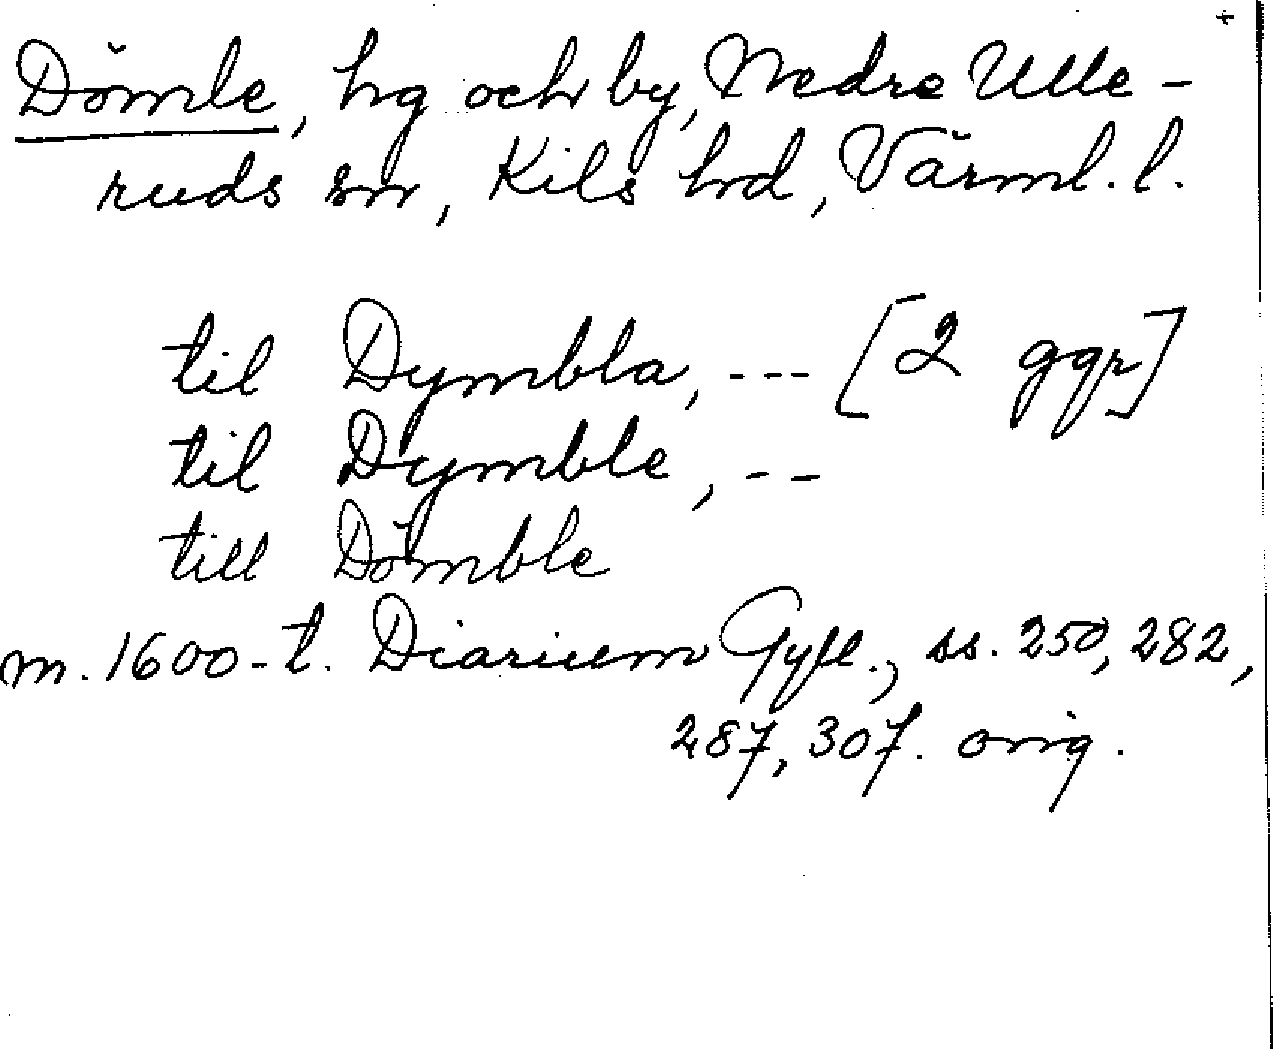 Dömle, hg och by, Nedre Ulle-
ruds sn, Kils hd, Värml. l.
til Dymbla, --- [2 ggr]
til Dymble, --
till Dömble
m. 1600-t. Diarium Gyll., ss. 250, 282,
287, 307. orig.